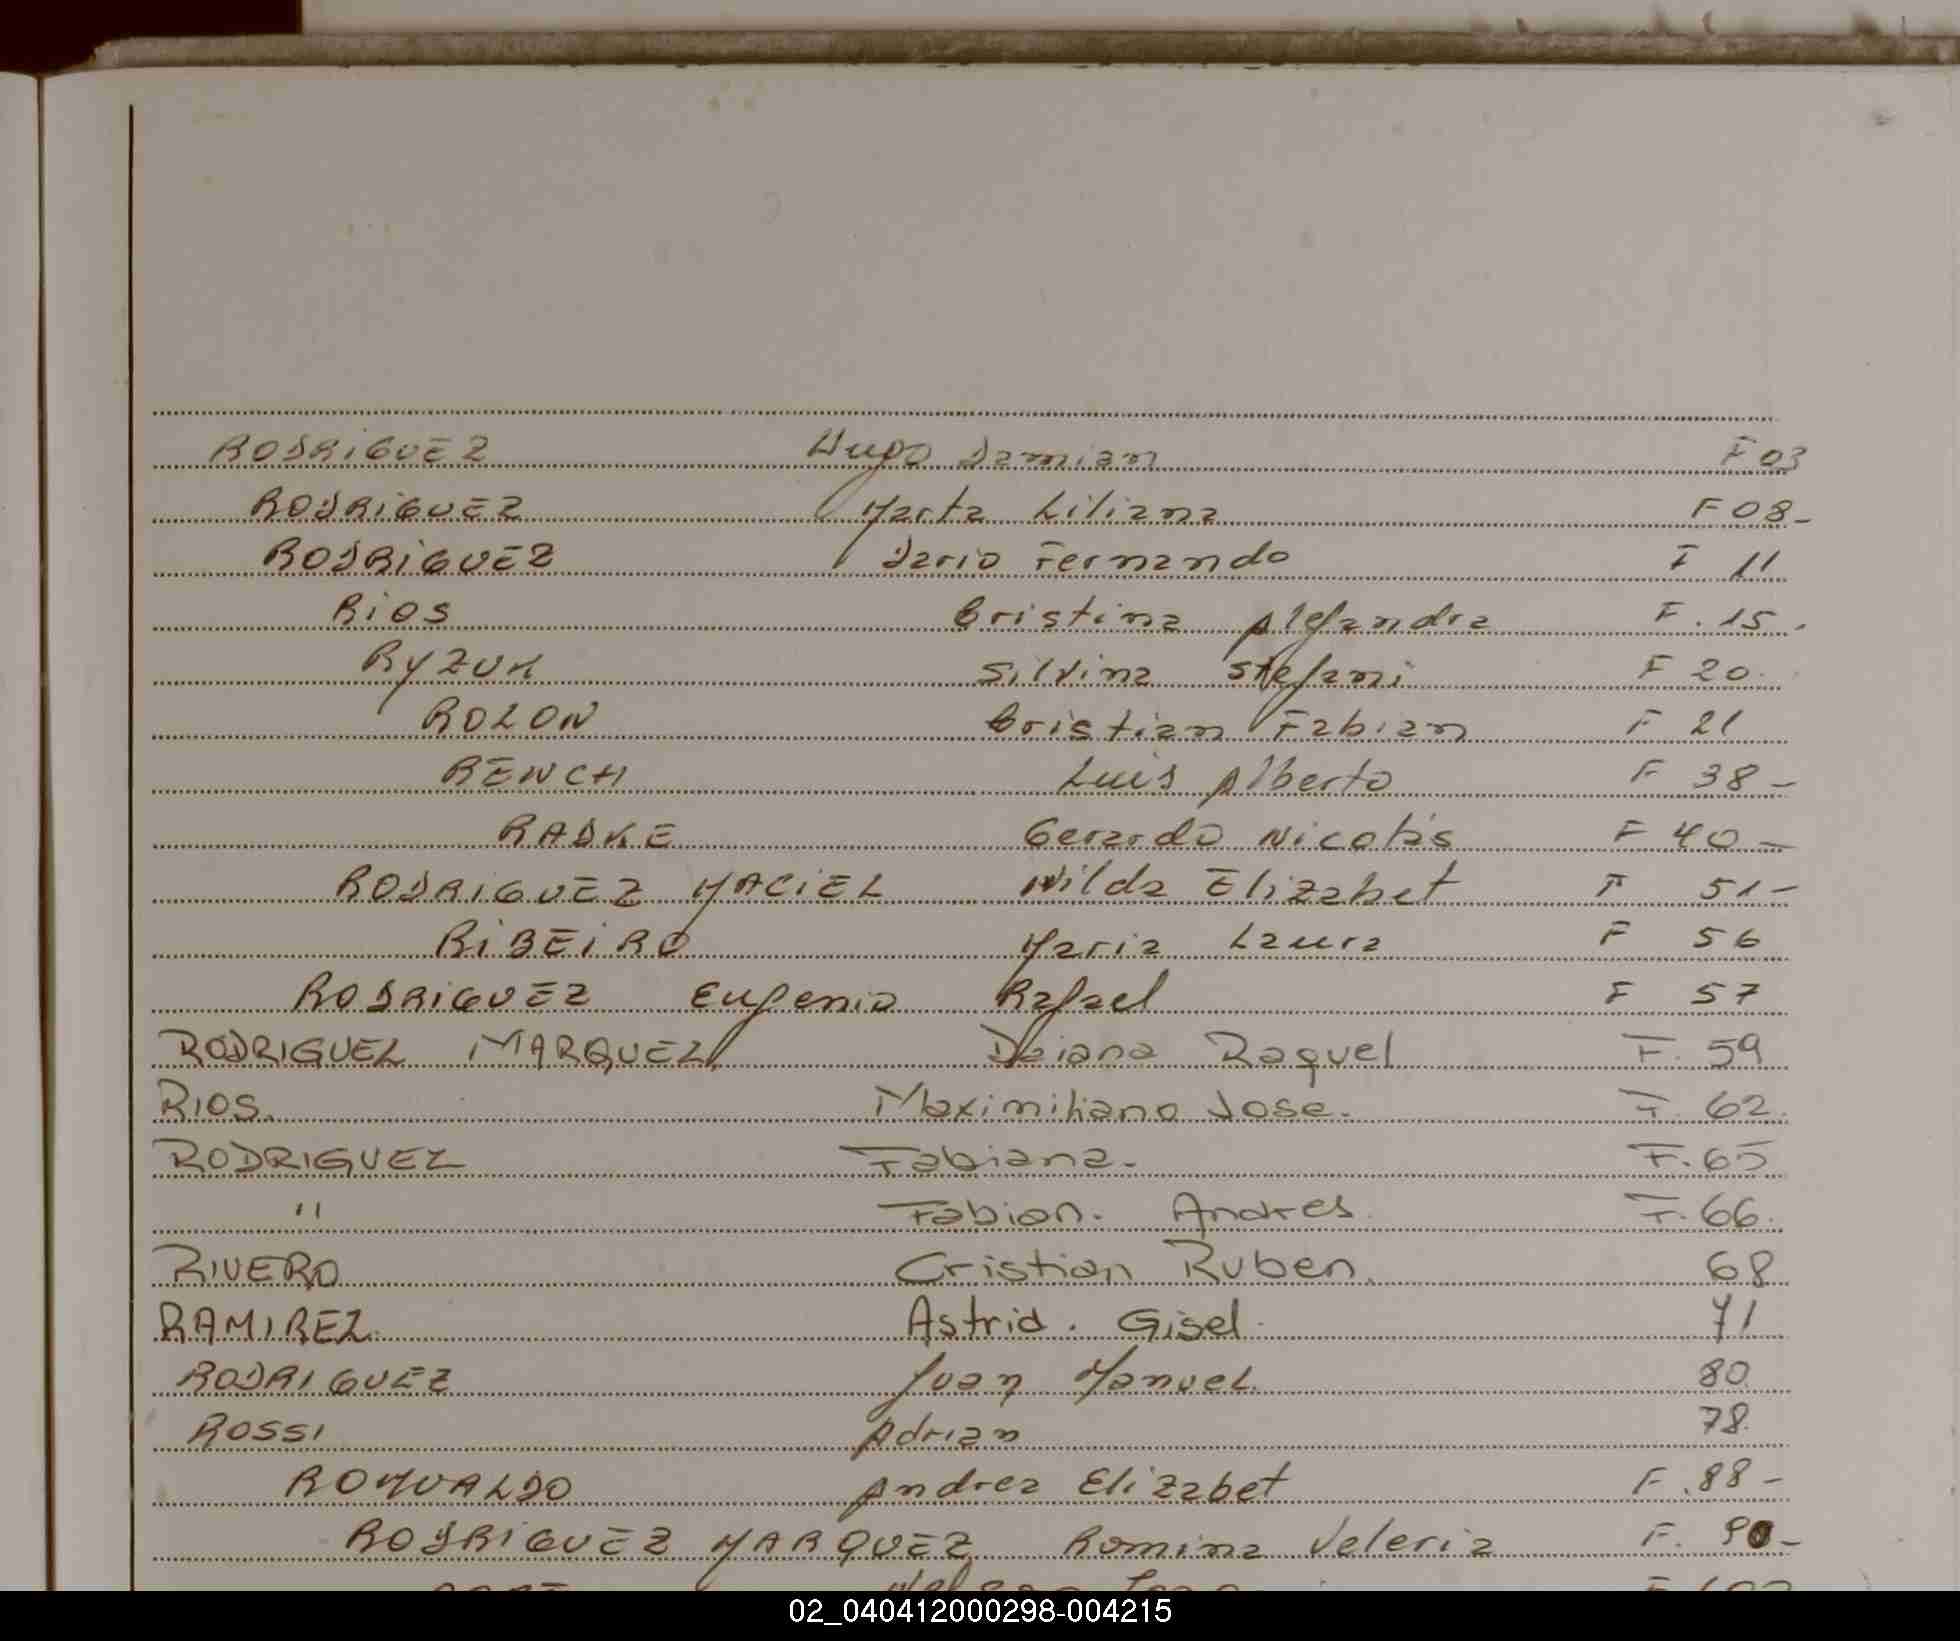 RODRiGUEZ Hugo Damian F 03
RODRiGUEZ Marta Liliana F 08-
RODRiGUEZ Dario Fernando F 11
RiOS Cristina Alejandra F. 15.
RyZUK Silvina Stefani F 20.
ROLON Cristian Fabian F 21
RENCH Luis Alberto F 38-
RADKE Gerardo Nicolás F 40-
RODRIGUEZ MACiEL Nilda Elizabet F 51-
RiBEiRO Maria Laura F 56
RODRiGUEZ Eugenio Rafael F 57
RODRIGUEZ MARQUEZ Daiana Raquel F. 59
RIOS. Maximiliano Jose. F. 62.
RODRIGUEZ Fabiana. F. 65
" Fabian. Andres. F. 66.
RIVERO Cristian Ruben. 68
RAMIREZ. Astrid. Gisel. 71
RODRIGUEZ Juan Manuel. 80.
ROSSI Adrian 78.
ROMUALDO Andrea Elizabet F. 88-
RODRiGUEZ MARQUEZ Romina Valeria F. 90-
02_040412000298-004215